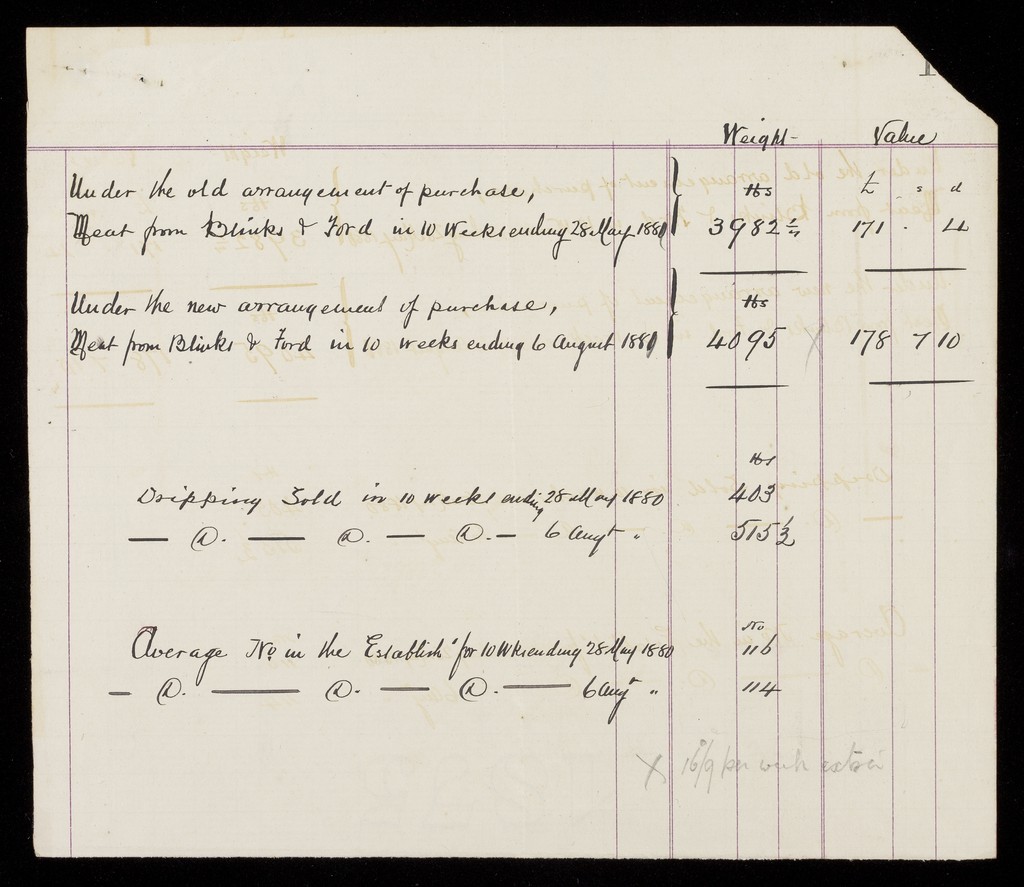 Weight Value
Under the old arrangement of purchase, lbs £ s d
Meat from Blinks & Ford in 10 Weeks ending 28 May 1880 3982 171 . 4
Under the new arrangement of purchase, lbs
Meat from Blinks & Ford in 10 weeks ending 6 August 1880 4095 X 178 7 10
lbs
Dripping Sold in 10 weeks ending 28 May 1880 403
— D. — D. — D. — 6 Augt " 515½
No
Average No. in the Establisht for 10 Wks ending 28 May 1880 116
— D. — D. — D. — 6 Augt " 114
X 16/9 per week extra